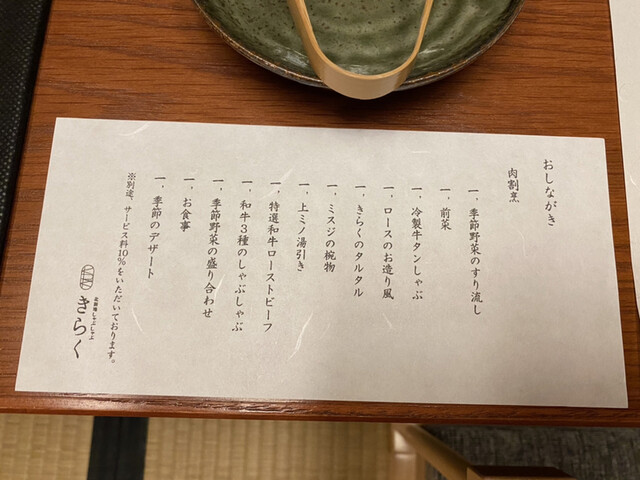 おしながき
肉割烹
一、季節野菜のすり流し
一、前菜
一、冷製牛タンしゃぶ
一、ロースのお造り風
一、きらくのタルタル
一、ミスジの椀物
一、上ミノ湯引き
一、特選和牛ローストビーフ
一、和牛3種のしゃぶしゃぶ
一、季節野菜の盛り合わせ
一、お食事
一、季節のデザート
※別途、サービス料10%をいただいております。
北新地しゃぶしゃぶ
きらく